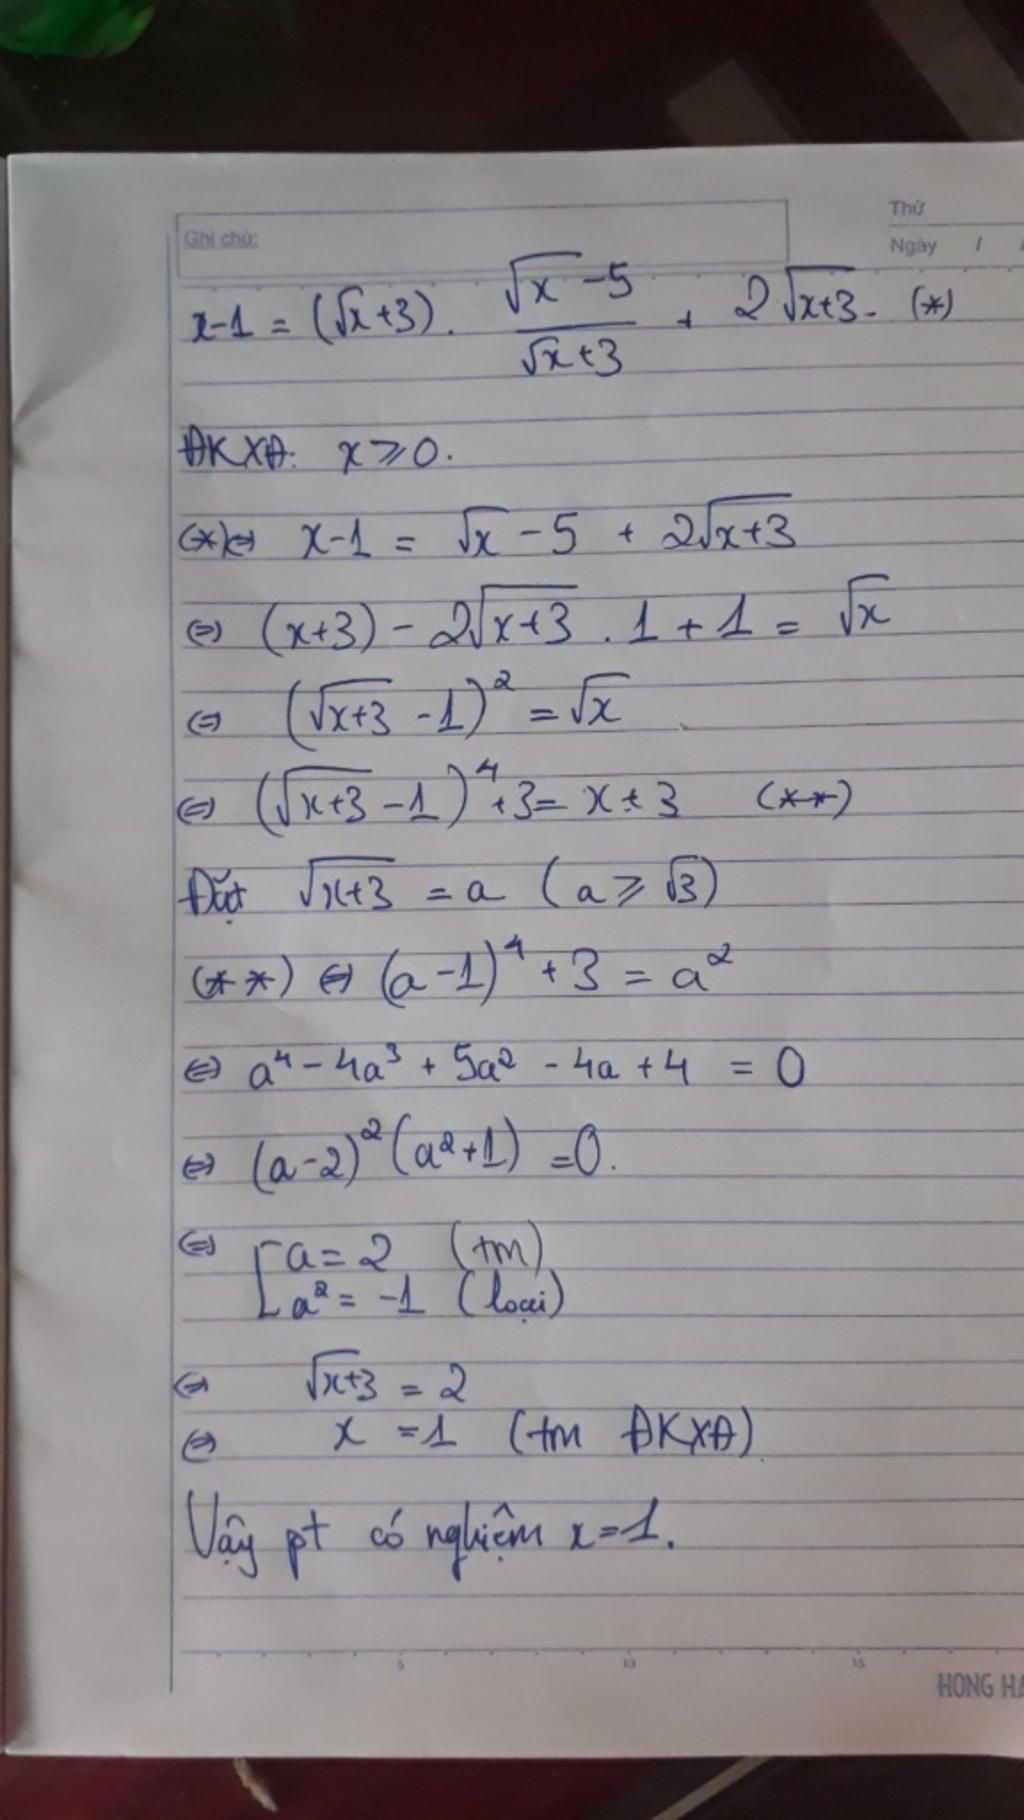 Ghi chú:
Thứ
Ngày / /
x-1 = (√x+3) . (√x - 5)/(√x+3) + 2√(x+3) . (*)
ĐKXĐ: x ⩾ 0.
(*) ⇔ x-1 = √x - 5 + 2√(x+3)
⇔ (x+3) - 2√(x+3) . 1 + 1 = √x
⇔ (√(x+3) - 1)² = √x
⇔ (√(x+3) - 1)⁴ + 3 = x + 3 (**)
Đặt √(x+3) = a (a ⩾ √3)
(**) ⇔ (a-1)⁴ + 3 = a²
⇔ a⁴ - 4a³ + 5a² - 4a + 4 = 0
⇔ (a-2)² (a²+1) = 0.
⇔ [ a = 2 (tm)
a² = -1 (loại)
⇔ √(x+3) = 2
⇔ x = 1 (tm ĐKXĐ)
Vậy pt có nghiệm x=1.
5 10 15
HONG HA